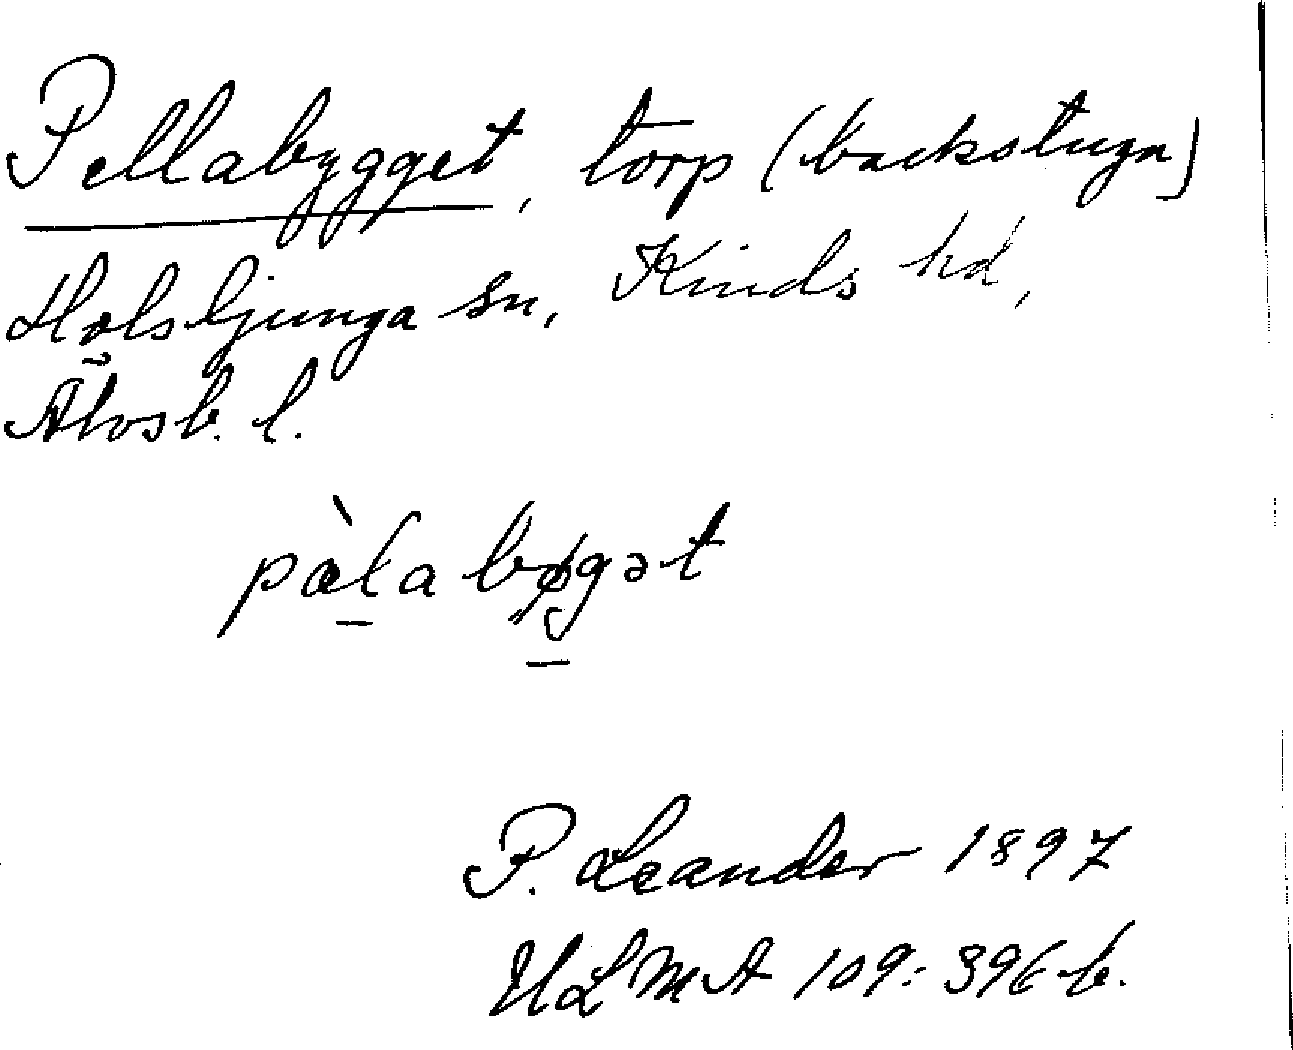 Pellabygget, torp (backstuga)
Holsljunga sn, Kinds hd,
Älvsb. l.
pæ̀la bygət
P. Leander 1897
ULMA 109: 396 b.